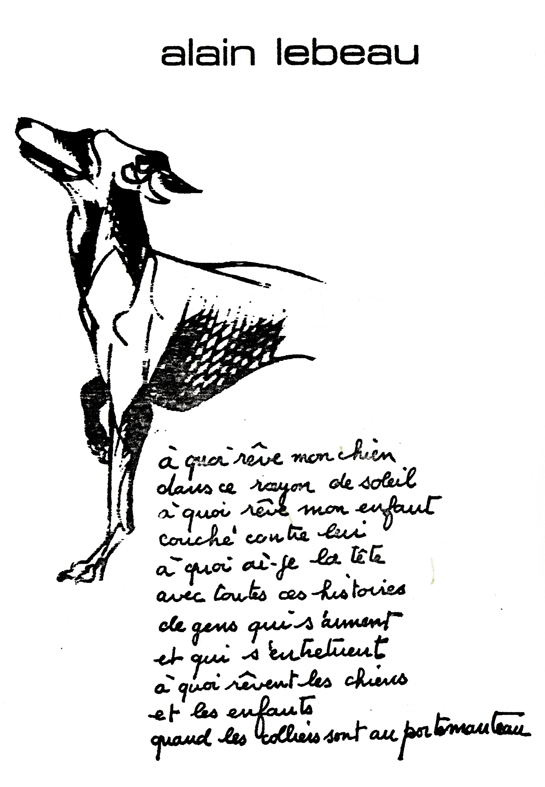 alain lebeau
à quoi rêve mon chien
dans ce rayon de soleil
à quoi rêve mon enfant
couché contre lui
à quoi ai-je la tête
avec toutes ces histoires
de gens qui s'aiment
et qui s'entretuent
à quoi rêvent les chiens
et les enfants
quand les colliers sont au portemanteau